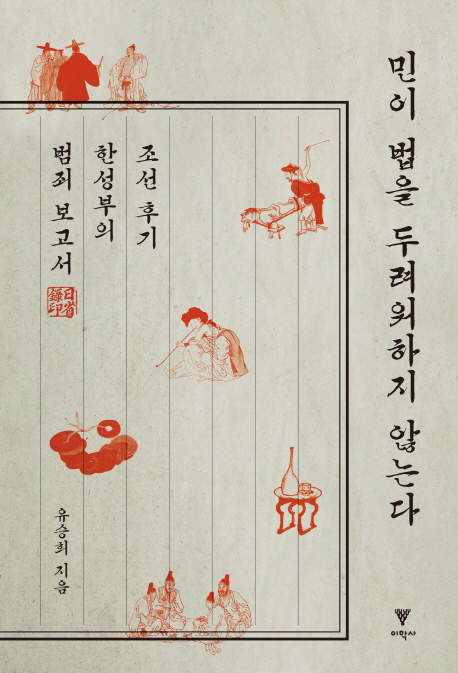 민이 법을 두려워하지 않는다
조선 후기
한성부의
범죄 보고서
日省
錄印
유승희 지음
이학사